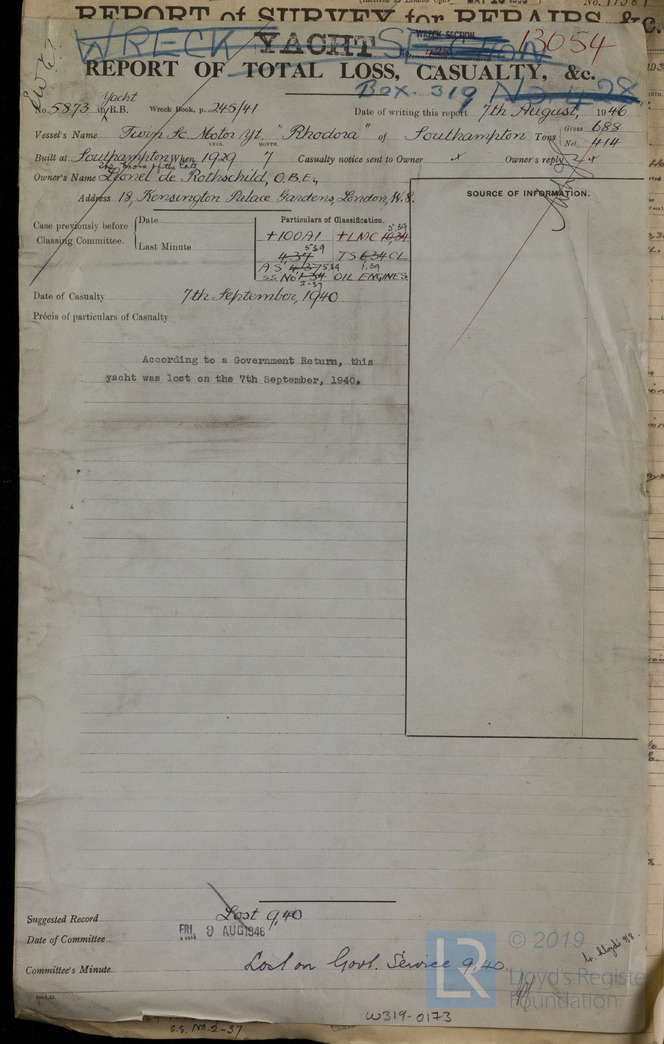 REPORT of SURVEY for REPAIRS, &c.
WRECK YACHT SECTION
WRECK SECTION
13054
REPORT OF TOTAL LOSS, CASUALTY, &c.
Box. 319
Yacht
No. 5873 in R.B. Wreck Book, p. 245/41 Date of writing this report 7th August, 1946
Vessel's Name Twin Sc Motor Yt. "Rhodora" of Southampton Tons Gross 688
Net 414
YEAR. MONTH.
Built at Southampton When 1929 7 Casualty notice sent to Owner x Owner's reply x
the Exors of the late
Owner's Name Lionel de Rothschild, O.B.E.,
Address 18, Kensington Palace Gardens, London, W.8.
SOURCE OF INFORMATION.
Case previously before Classing Committee. Date
Last Minute
Particulars of Classification.
5.39
+100A1 +LMC 10,34
5.39
4,37 TS 6,34 CL
A.S 4.37 5.39 1.39
S.S. No 1-34 OIL ENGINES.
2-37
Date of Casualty 7th September, 1940
Précis of particulars of Casualty
According to a Government Return, this
yacht was lost on the 7th September, 1940.
Suggested Record Lost 9,40
Date of Committee FRI. 9 AUG 1946
Committee's Minute Lost on Govt. Service 9,40.
© 2019
LR
Lloyd's Register
Foundation
S.S. No. 2-37
W319-0173